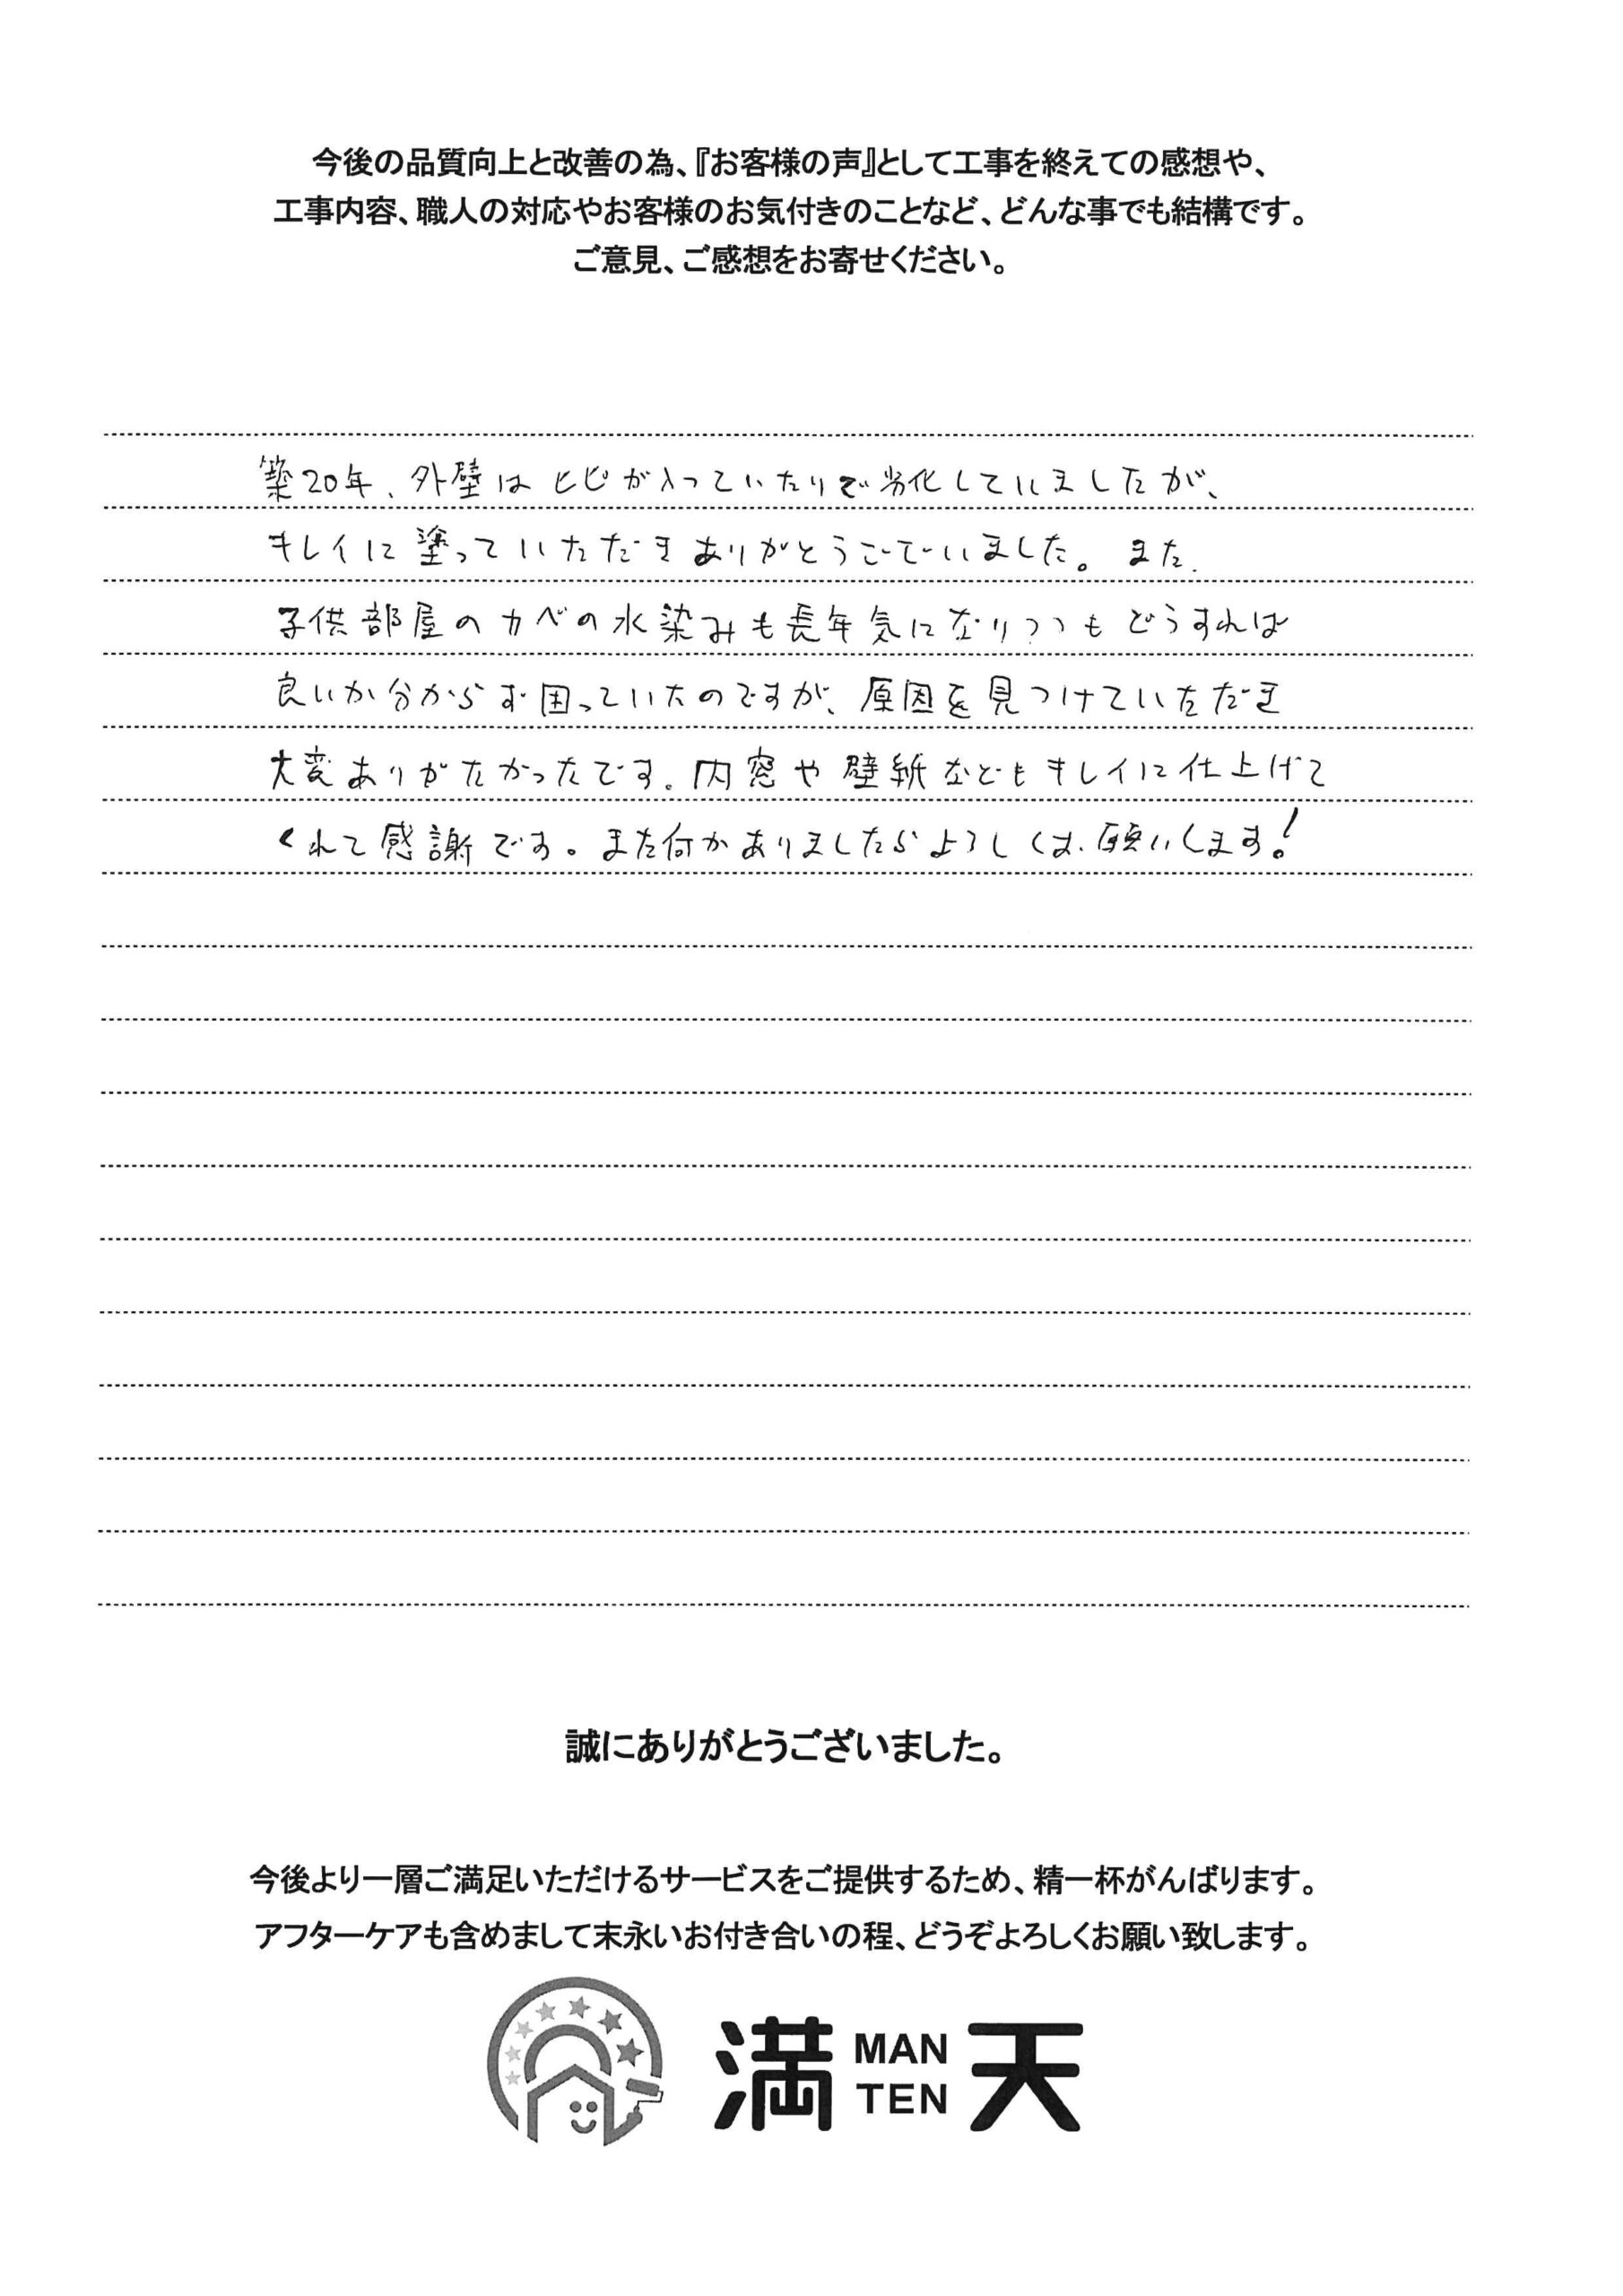 今後の品質向上と改善の為、『お客様の声』として工事を終えての感想や、
工事内容、職人の対応やお客様のお気付きのことなど、どんな事でも結構です。
ご意見、ご感想をお寄せください。
築20年、外壁はヒビが入っていたりで劣化していましたが、
キレイに塗っていただきありがとうございました。また、
子供部屋のカベの水染みも長年気になりつつもどうすれば
良いか分からず困っていたのですが、原因を見つけていただき
大変ありがたかったです。内窓や壁紙などもキレイに仕上げて
くれて感謝です。また何かありましたらよろしくお願いします!
誠にありがとうございました。
今後より一層ご満足いただけるサービスをご提供するため、精一杯がんばります。
アフターケアも含めまして末永いお付き合いの程、どうぞよろしくお願い致します。
満 MAN TEN 天